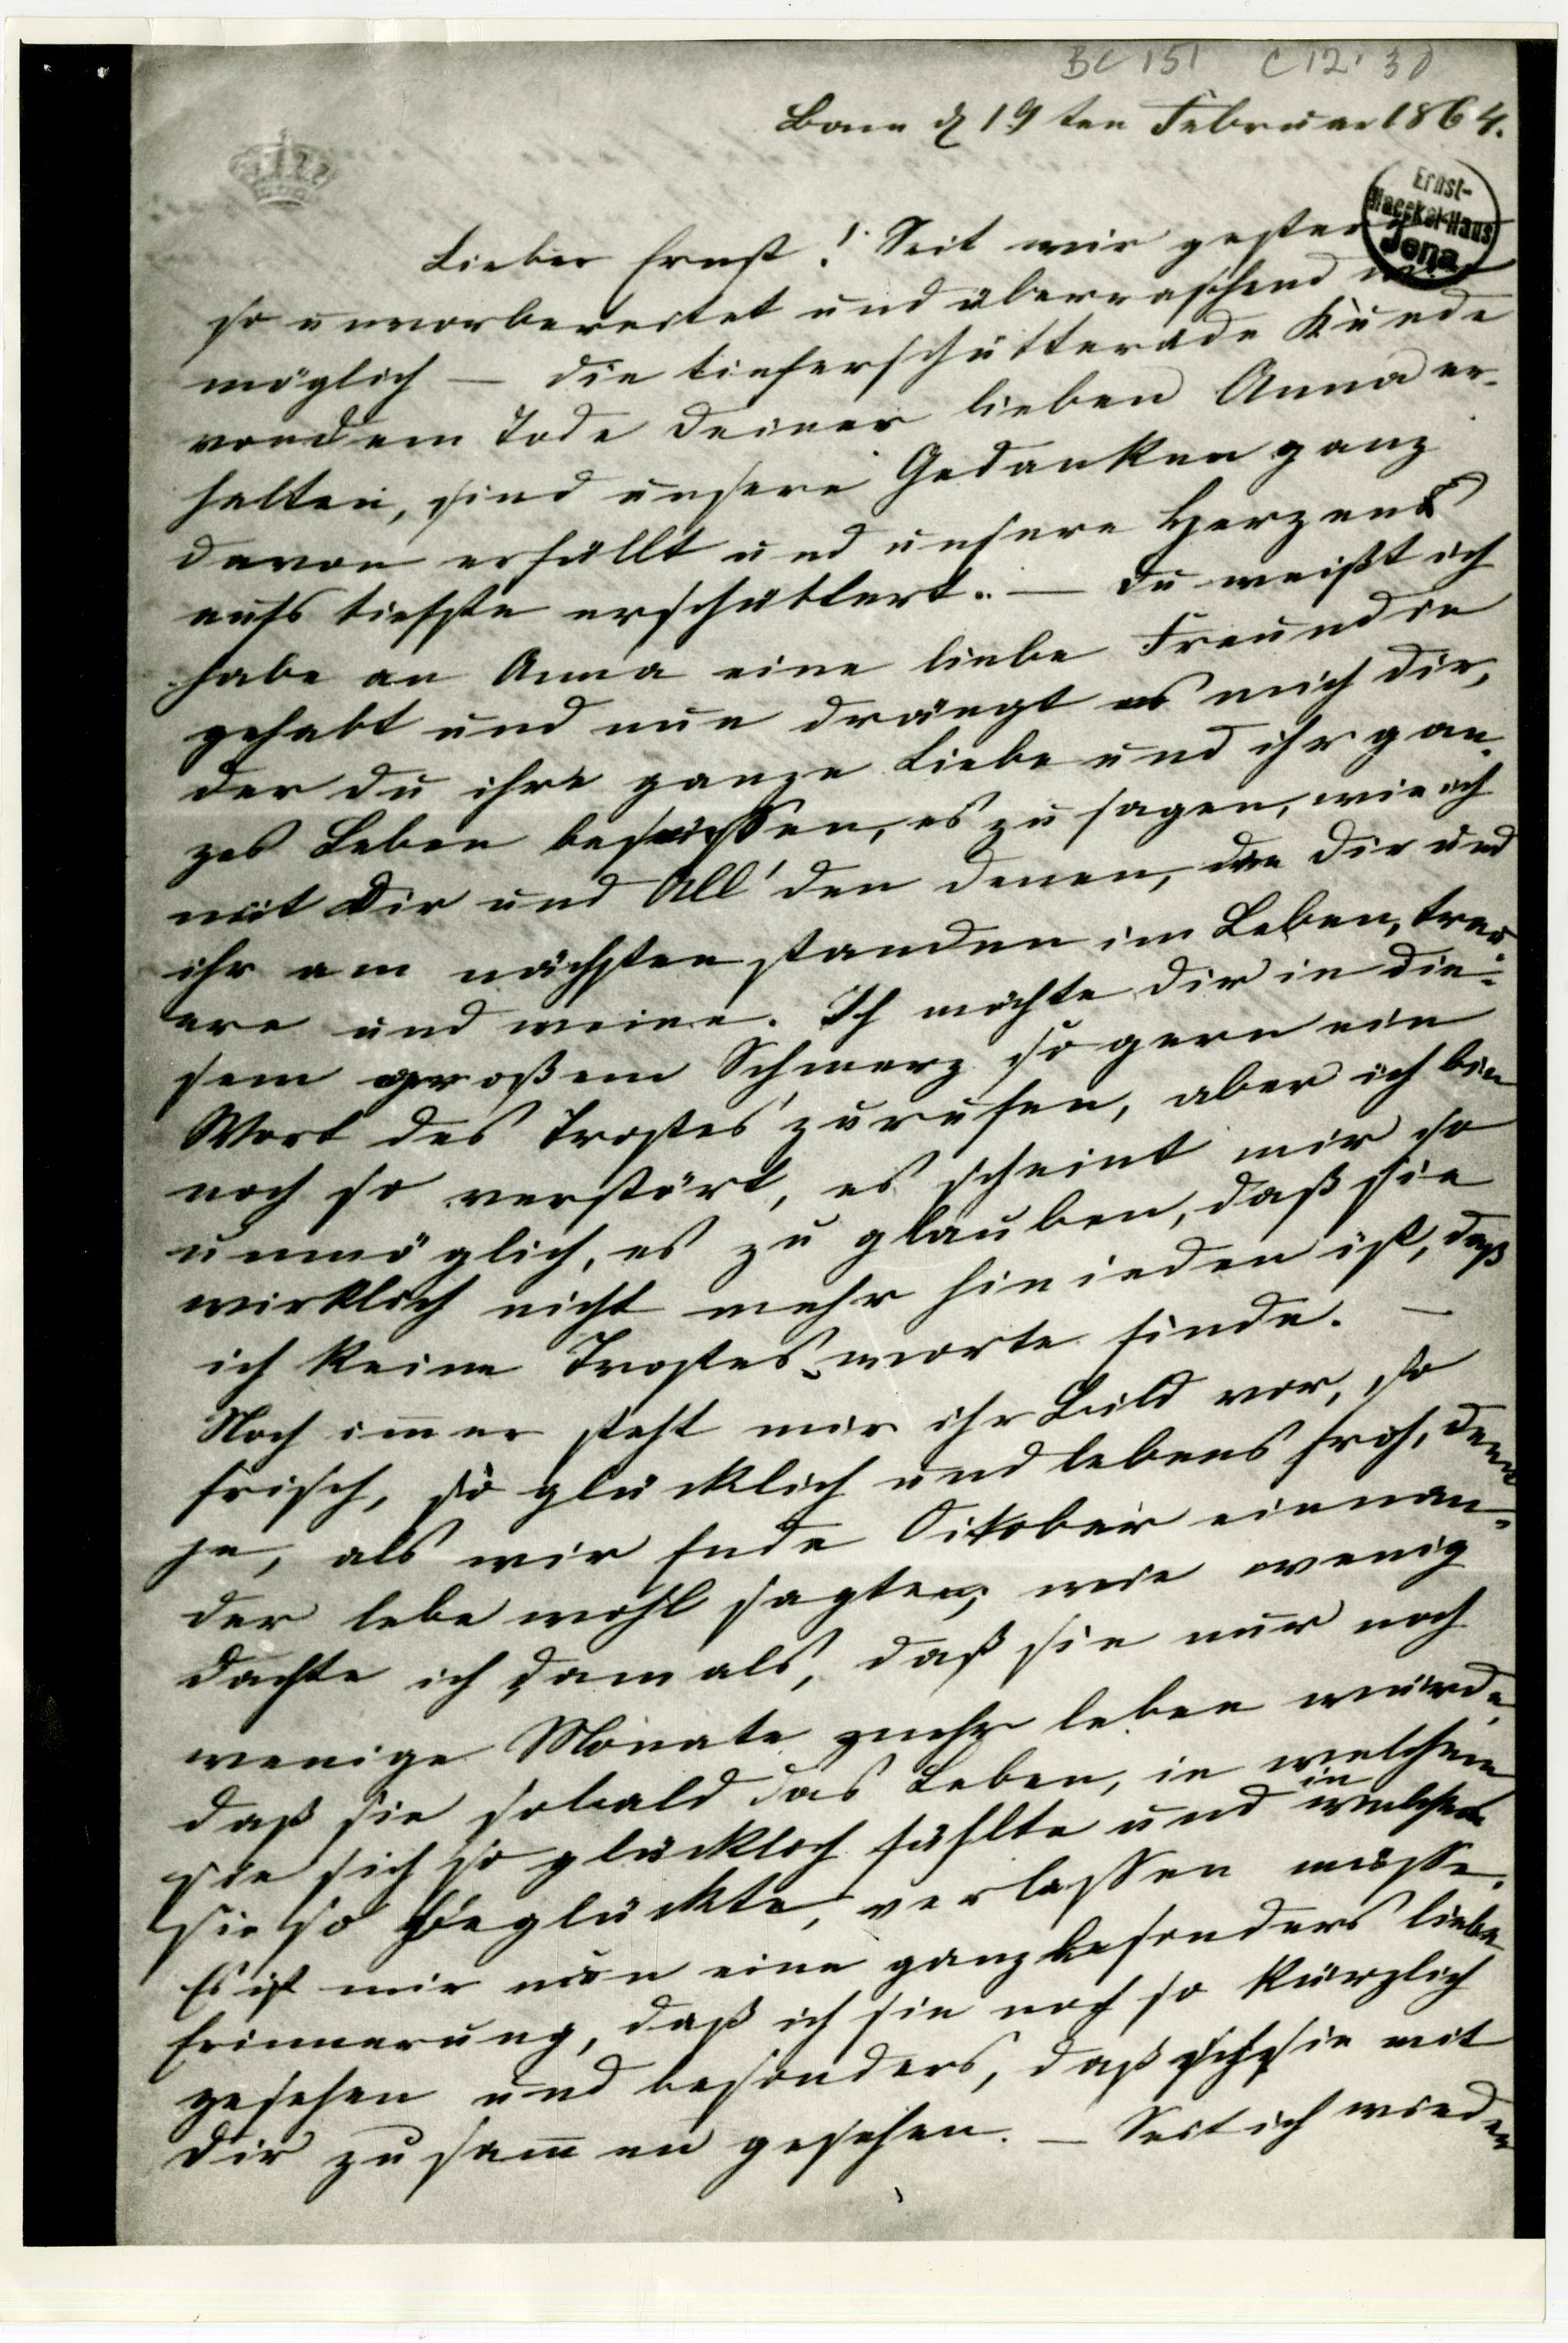 BC 151 C 12. 30
Bonn d 19ten Februar 1864.
Ernst-
Haeckel-Haus
Jena
Lieber Ernst! Seit wir gestern
so unvorbereitet und überraschend wie
möglich – die tieferschütternde Kunde
von dem Tode Deiner lieben Anna er-
halten, sind unsere Gedanken ganz
davon erfüllt und unsere Herzen
aufs tiefste erschüttert. – Du weißt ich
habe an Anna eine liebe Freundin
gehabt und nun drängt es mich Dir,
der Du ihre ganze Liebe und ihr gan-
zes Leben besessen, es zu sagen, wie ich
mit Dir und All' den denen, die Dir und
ihr am nächsten standen im Leben, trau-
ere und weine. Ich möchte Dir in die-
sem großem Schmerz so gern ein
Wort des Trostes zurufen, aber ich bin
noch so verstört, es scheint mir so
unmöglich, es zu glauben, daß sie
wirklich nicht mehr hinieden ist, daß
ich keine Trostesworte finde. –
Noch im̄er steht mir ihr Bild vor, so
frisch, so glücklich und lebensfroh, denn
je, als wir Ende Oktober einnan-
der lebe wohl sagten; wie wenig
dachte ich damals, daß sie nur noch
wenige Monate mehr leben würde,
daß sie sobald das Leben, in welchem
sie sich so glücklich fühlte und in welchem
sie so beglückte, verlassen müsse.
Es ist mir nun eine ganz besonders liebe
Erinnerung, daß ich sie noch so kürzlich
gesehen und besonders, daß ich sie mit
Dir zusam̄en gesehen. – Seit ich wieder